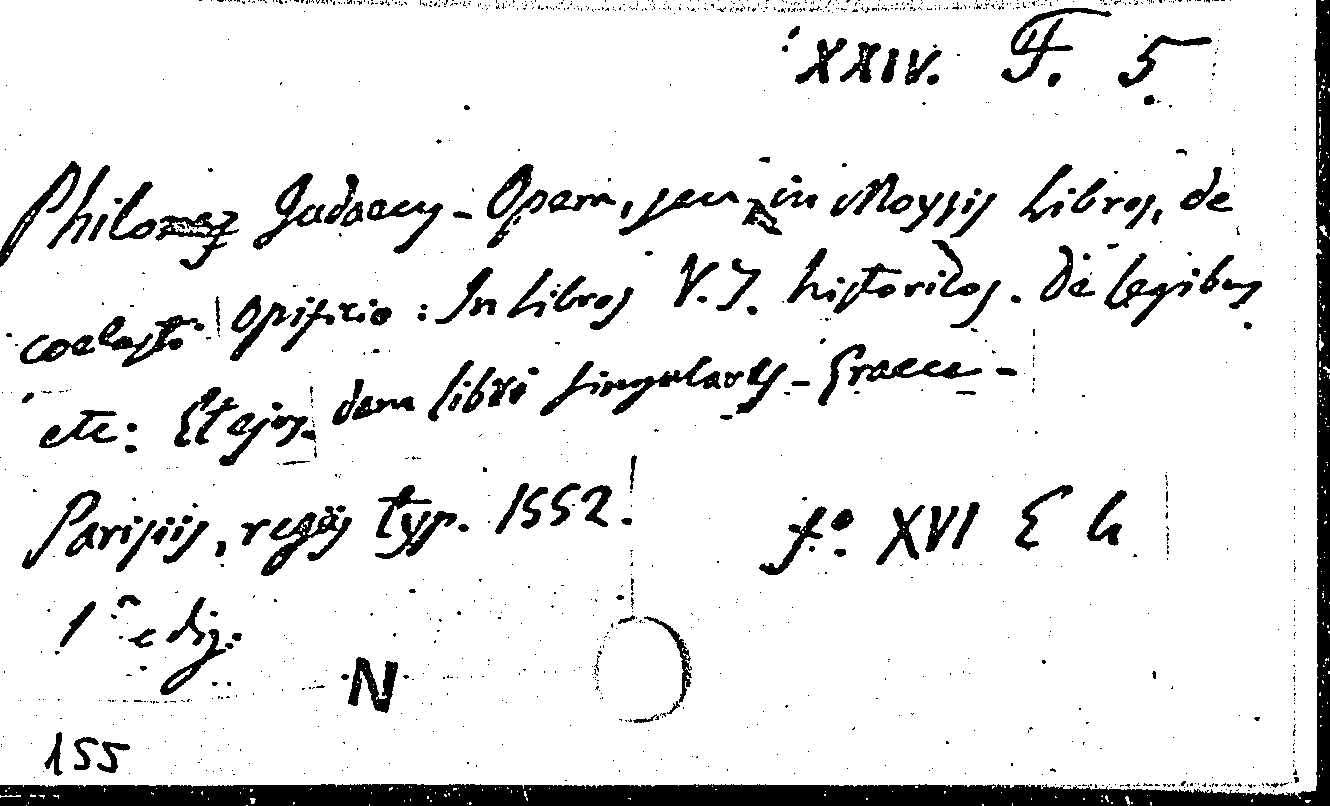 XXIV. F. 5.
Philo Judaeus - Opera, seu in Moysis Libros, de
coelesti opificio : In Libros V. J. historicos. De legibus
etc: Et ejusdem libri singulares - Graece -
Parisiis, regiis typ. 1552. fº. XVI E 4
1ª ediz.
N
155